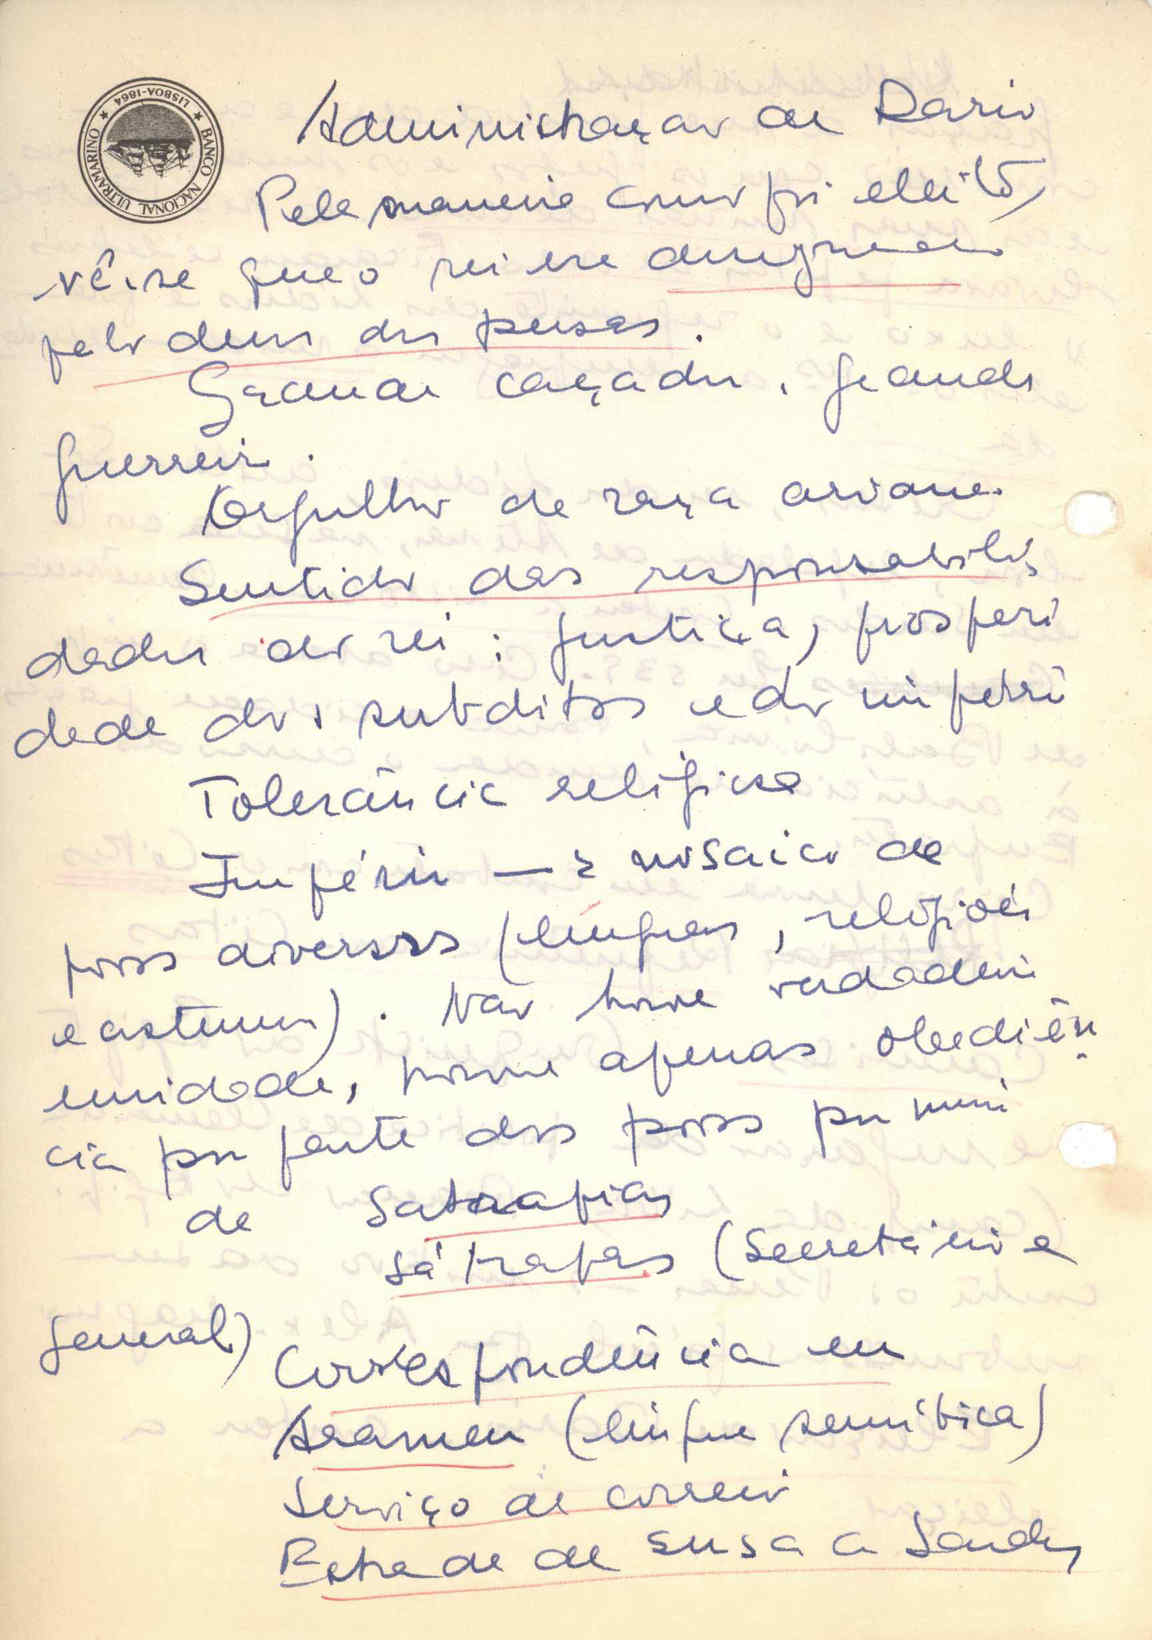 BANCO NACIONAL ULTRAMARINO
LISBOA-1864
Administração de Dario
Pela maneira como foi eleito,
vê-se que o rei era designado
pelo deus dos persas.
Grande caçador, grande
guerreiro.
Orgulho de raça ariana.
Sentido das responsabili
dades do rei: justiça, prosperi
dade dos subditos e do império
Tolerância religiosa
Império → mosaico de
povos diversos (línguas, religiões
e costumes). Não houve verdadeira
unidade, houve apenas obediên
cia por parte dos povos por meio
de Satrapias
Sátrapas (Secretário e
general)
Correspondência em
Arameu (língua semítica)
Serviço de correio
Estrada de Susa a Sardes